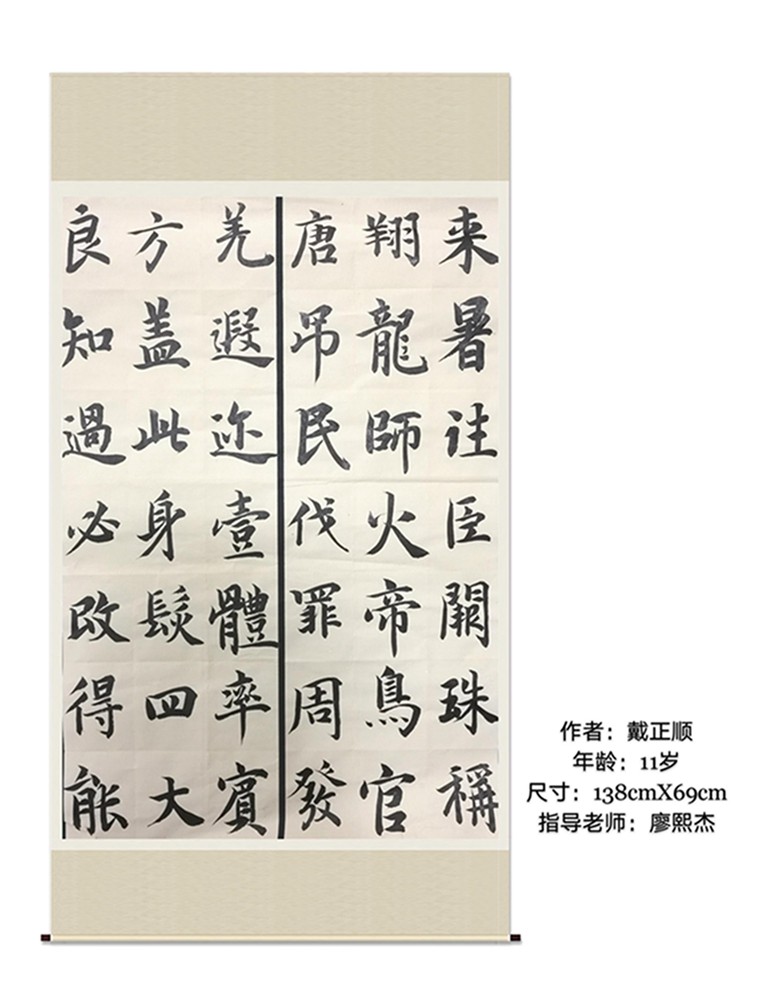 来暑往臣闕珠稱
翔龍師火帝鳥官
唐吊民伐罪周發
羌遐迩壹體率賓
方盖此身髮四大
良知過必改得能
作者：戴正顺
年龄：11岁
尺寸：138cmX69cm
指导老师：廖熙杰